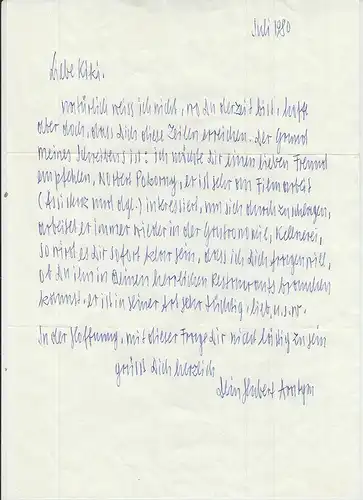 Juli 1980
Liebe Kiki.
natürlich weiss ich nicht, wo Du derzeit bist, hoffe
aber doch, dass Dich diese Zeilen erreichen. Der Grund
meines Schreibens ist: ich möchte Dir einen lieben Freund
empfehlen, Norbert Pokorny, er ist sehr an Filmarbeit
(Assistenz und dgl.) interessiert, um sich durchzuschlagen,
arbeitet er immer wieder in der Gastronomie, Kellnerei,
so wird es Dir sofort klar sein, dass ich Dich fragen will,
ob Du ihn in Deinen herrlichen Restaurants brauchen
kannst. er ist in seiner Art sehr tüchtig, lieb, u.s.w.
In der Hoffnung, mit dieser Frage Dir nicht lästig zu sein
grüsst Dich herzlich
Dein Hubert Aratym